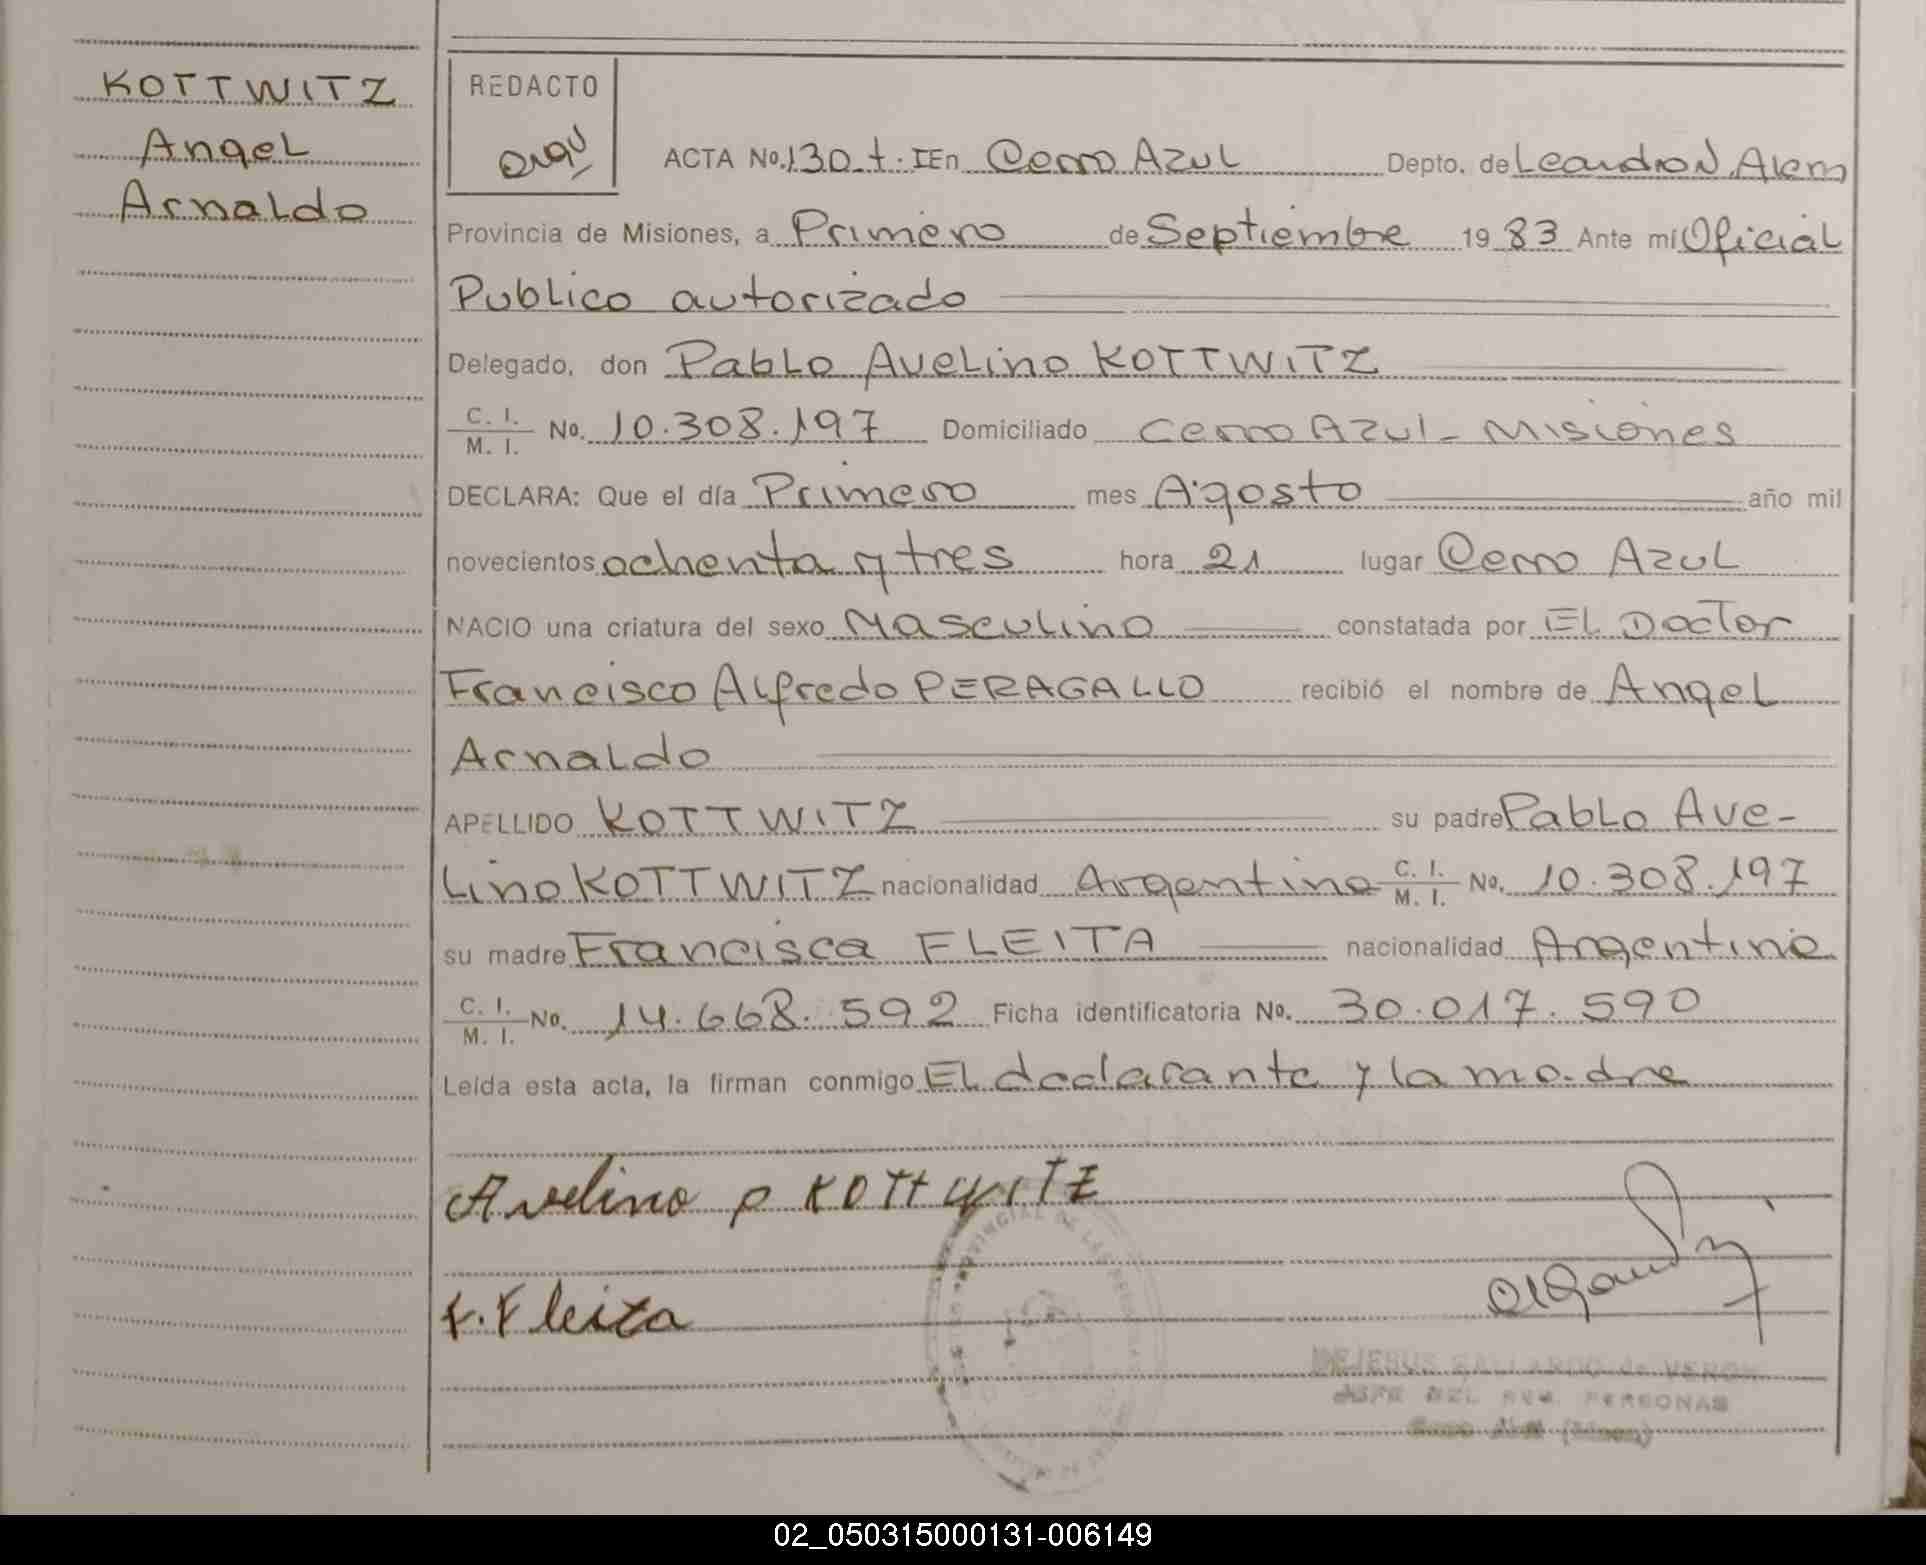 KOTTWITZ
Angel
Arnaldo
REDACTO
ACTA No. 130-t-I En Cerro Azul Depto. de Leandro N. Alem
Provincia de Misiones, a Primero de Septiembre 1983 Ante mí Oficial
Publico autorizado
Delegado, don Pablo Avelino KOTTWITZ
C. I.
M. I. No. 10.308.197 Domiciliado Cerro Azul - Misiones
DECLARA: Que el día Primero mes Agosto año mil
novecientos ochenta y tres hora 21 lugar Cerro Azul
NACIO una criatura del sexo Masculino constatada por EL Doctor
Francisco Alfredo PERAGALLO recibió el nombre de Angel
Arnaldo
APELLIDO KOTTWITZ su padre Pablo Ave-
lino KOTTWITZ nacionalidad Argentina C. I. M. I. No. 10.308.197
su madre Francisca FLEITA nacionalidad Argentina
C. I.
M. I. No. 14.668.592 Ficha identificatoria No. 30.017.590
Leída esta acta, la firman conmigo EL declarante y la madre
Avelino P KOTTWITZ
F. Fleita
PROVINCIAL DE LAS
DEJESUS GALLARDO de VERON
JEFE DEL REG. PERSONAS
02_050315000131-006149